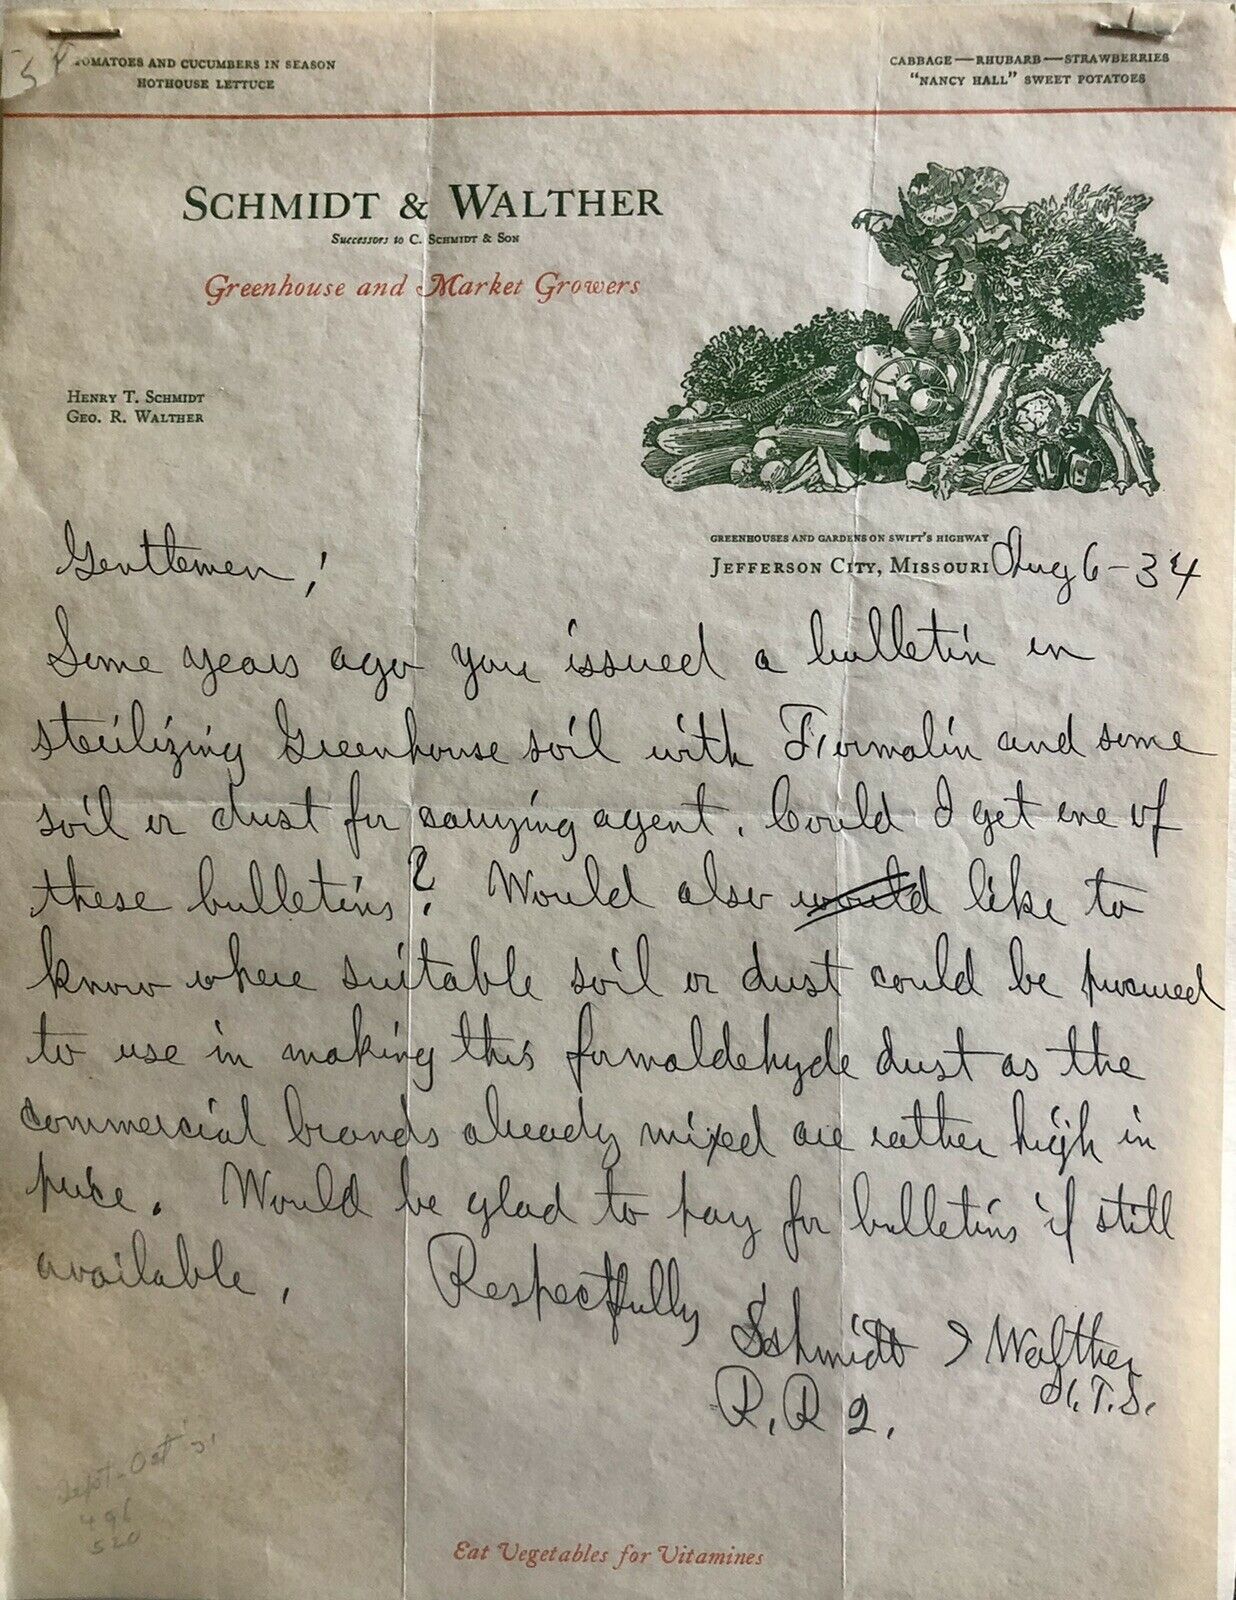 TOMATOES AND CUCUMBERS IN SEASON
HOTHOUSE LETTUCE
CABBAGE — RHUBARB — STRAWBERRIES
"NANCY HALL" SWEET POTATOES
SCHMIDT & WALTHER
Successors to C. SCHMIDT & SON
Greenhouse and Market Growers
HENRY T. SCHMIDT
GEO. R. WALTHER
GREENHOUSES AND GARDENS ON SWIFT'S HIGHWAY
JEFFERSON CITY, MISSOURI Aug 6-34
Gentlemen;
Some years ago you issued a bulletin on
sterilizing Greenhouse soil with Formalin and some
soil or dust for carrying agent. Could I get one of
these bulletins? Would also would like to
know where suitable soil or dust could be procured
to use in making this formaldehyde dust as the
commercial brands already mixed are rather high in
price. Would be glad to pay for bulletins if still
available.
Respectfully
Schmidt & Walther
H.T.S.
R.R 2.
Sept-Oct
496
520
Eat Vegetables for Vitamines